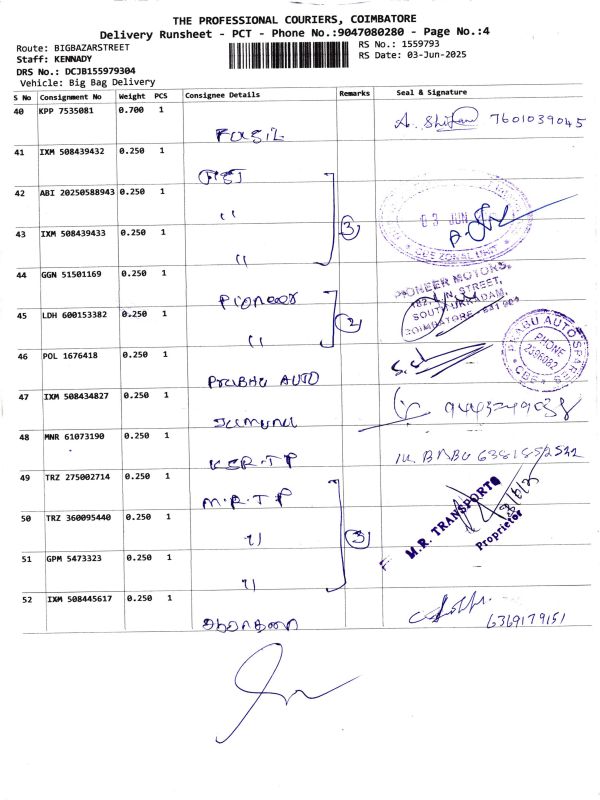 THE PROFESSIONAL COURIERS, COIMBATORE
Delivery Runsheet - PCT - Phone No.:9047080280 - Page No.:4
Route: BIGBAZARSTREET
RS No.: 1559793
Staff: KENNADY
RS Date: 03-Jun-2025
DRS No.: DCJB155979304
Vehicle: Big Bag Delivery
S No Consignment No Weight PCS Consignee Details Remarks Seal & Signature
40 KPP 7535081 0.700 1
FASIL A. 7601039045
41 IXM 508439432 0.250 1
42 ABI 20250588943 0.250 1
" 03 JUN
43 IXM 508439433 0.250 1 3
" CBE ZONAL UNIT
44 GGN 51501169 0.250 1
Pioneer PIONEER MOTORS,
45 LDH 600153382 0.250 1 2
" COIMBATORE
46 POL 1676418 0.250 1
PRABHU AUTO PRABU AUTO SPARES PHONE CBE
47 IXM 508434827 0.250 1
48 MNR 61073190 0.250 1
KER.TP BABU 6381852522
49 TRZ 275002714 0.250 1
M.R.TP M.R. TRANSPORTS
50 TRZ 360095440 0.250 1
" 3 Proprietor
51 GPM 5473323 0.250 1
"
52 IXM 508445617 0.250 1
6369179151